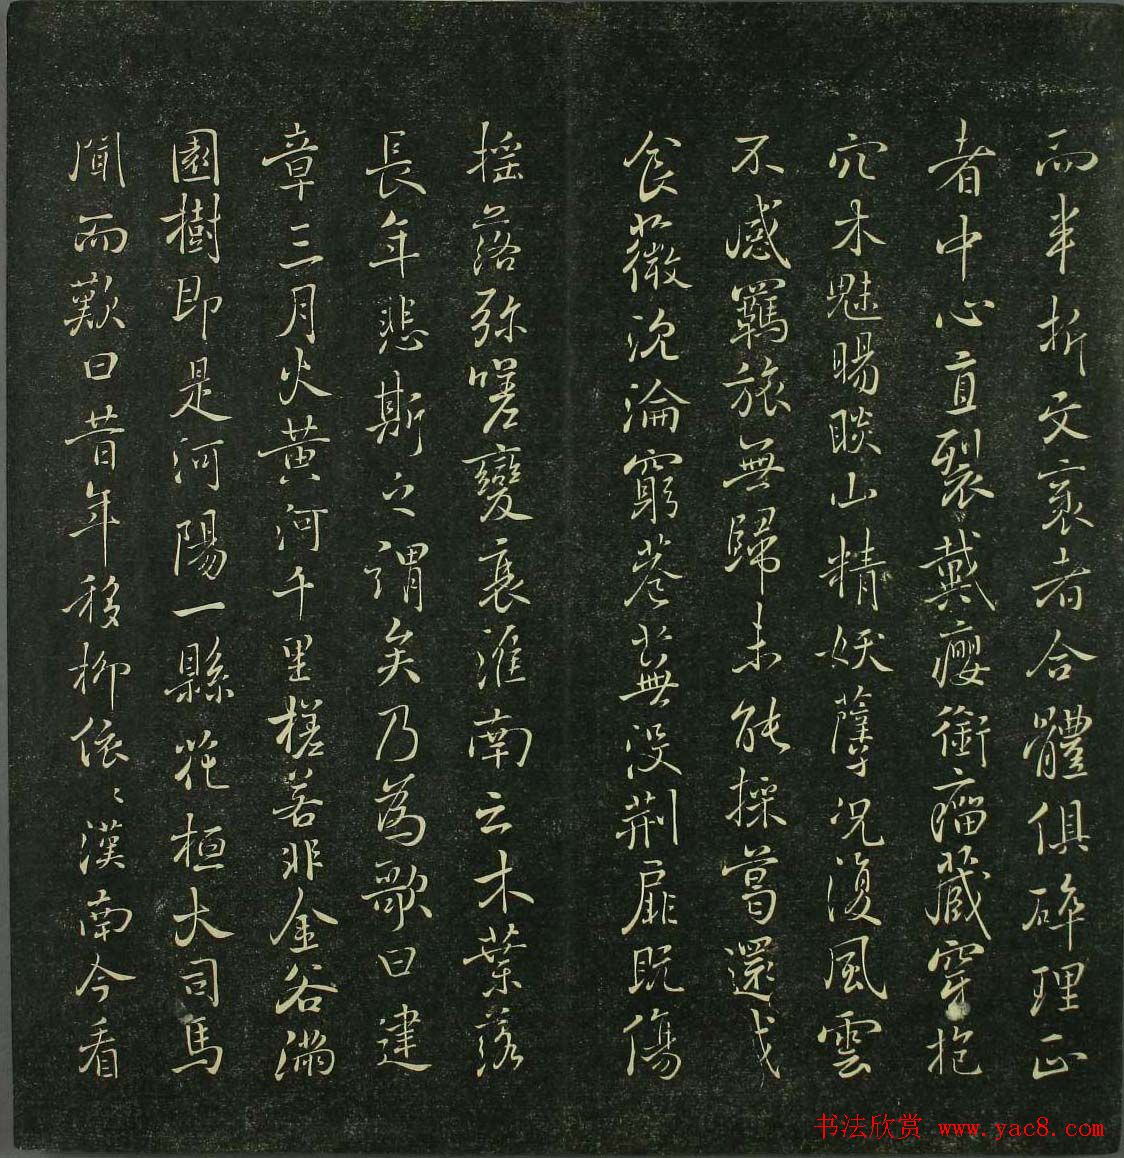 而半折文衺者合體俱碎理正
者中心直裂戴癭銜瘤藏穿抱
穴木魅賜睒山精妖孽況復風雲
不感羈旅無歸未能採葛還成
食薇沈淪窮巷蕪没荊扉既傷
搖落弥嗟變衰淮南云木葉落
長年悲斯之謂矣乃為歌曰建
章三月火黃河千里槎若非金谷滿
園樹即是河陽一縣花桓大司馬
聞而歎曰昔年移柳依〻漢南今看
书法欣赏 www.yac8.com